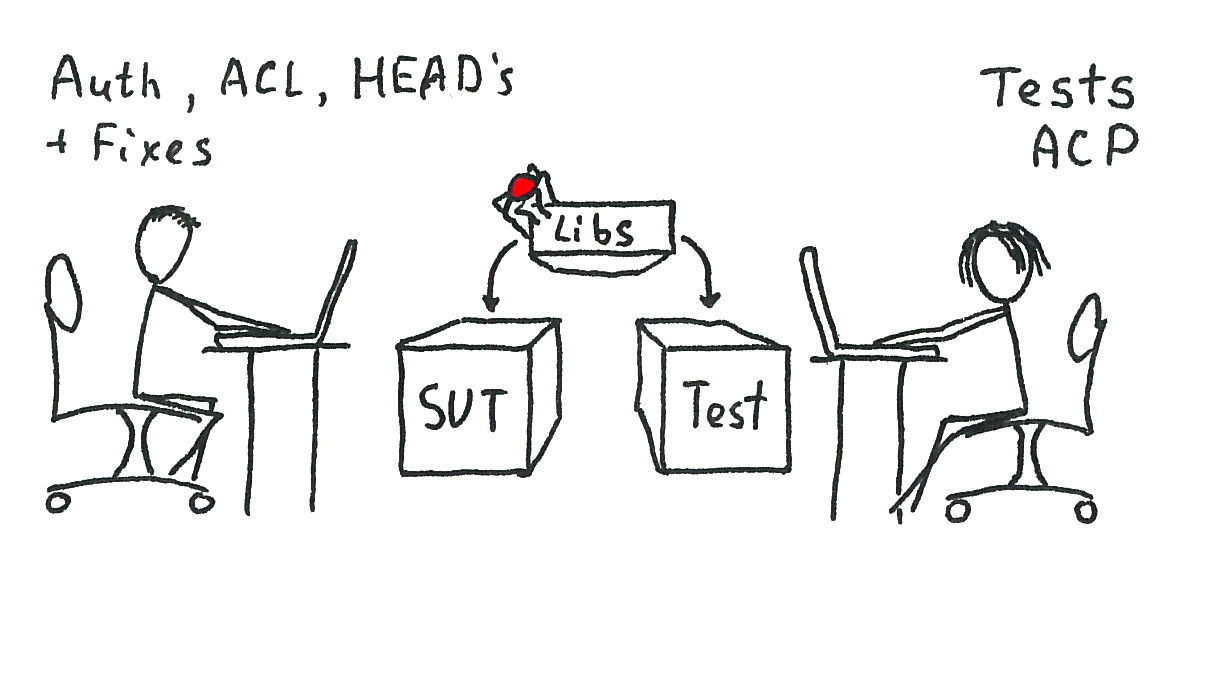 Auth, ACL, HEAD's
+ Fixes
Tests
ACP
Libs
SUT
Test